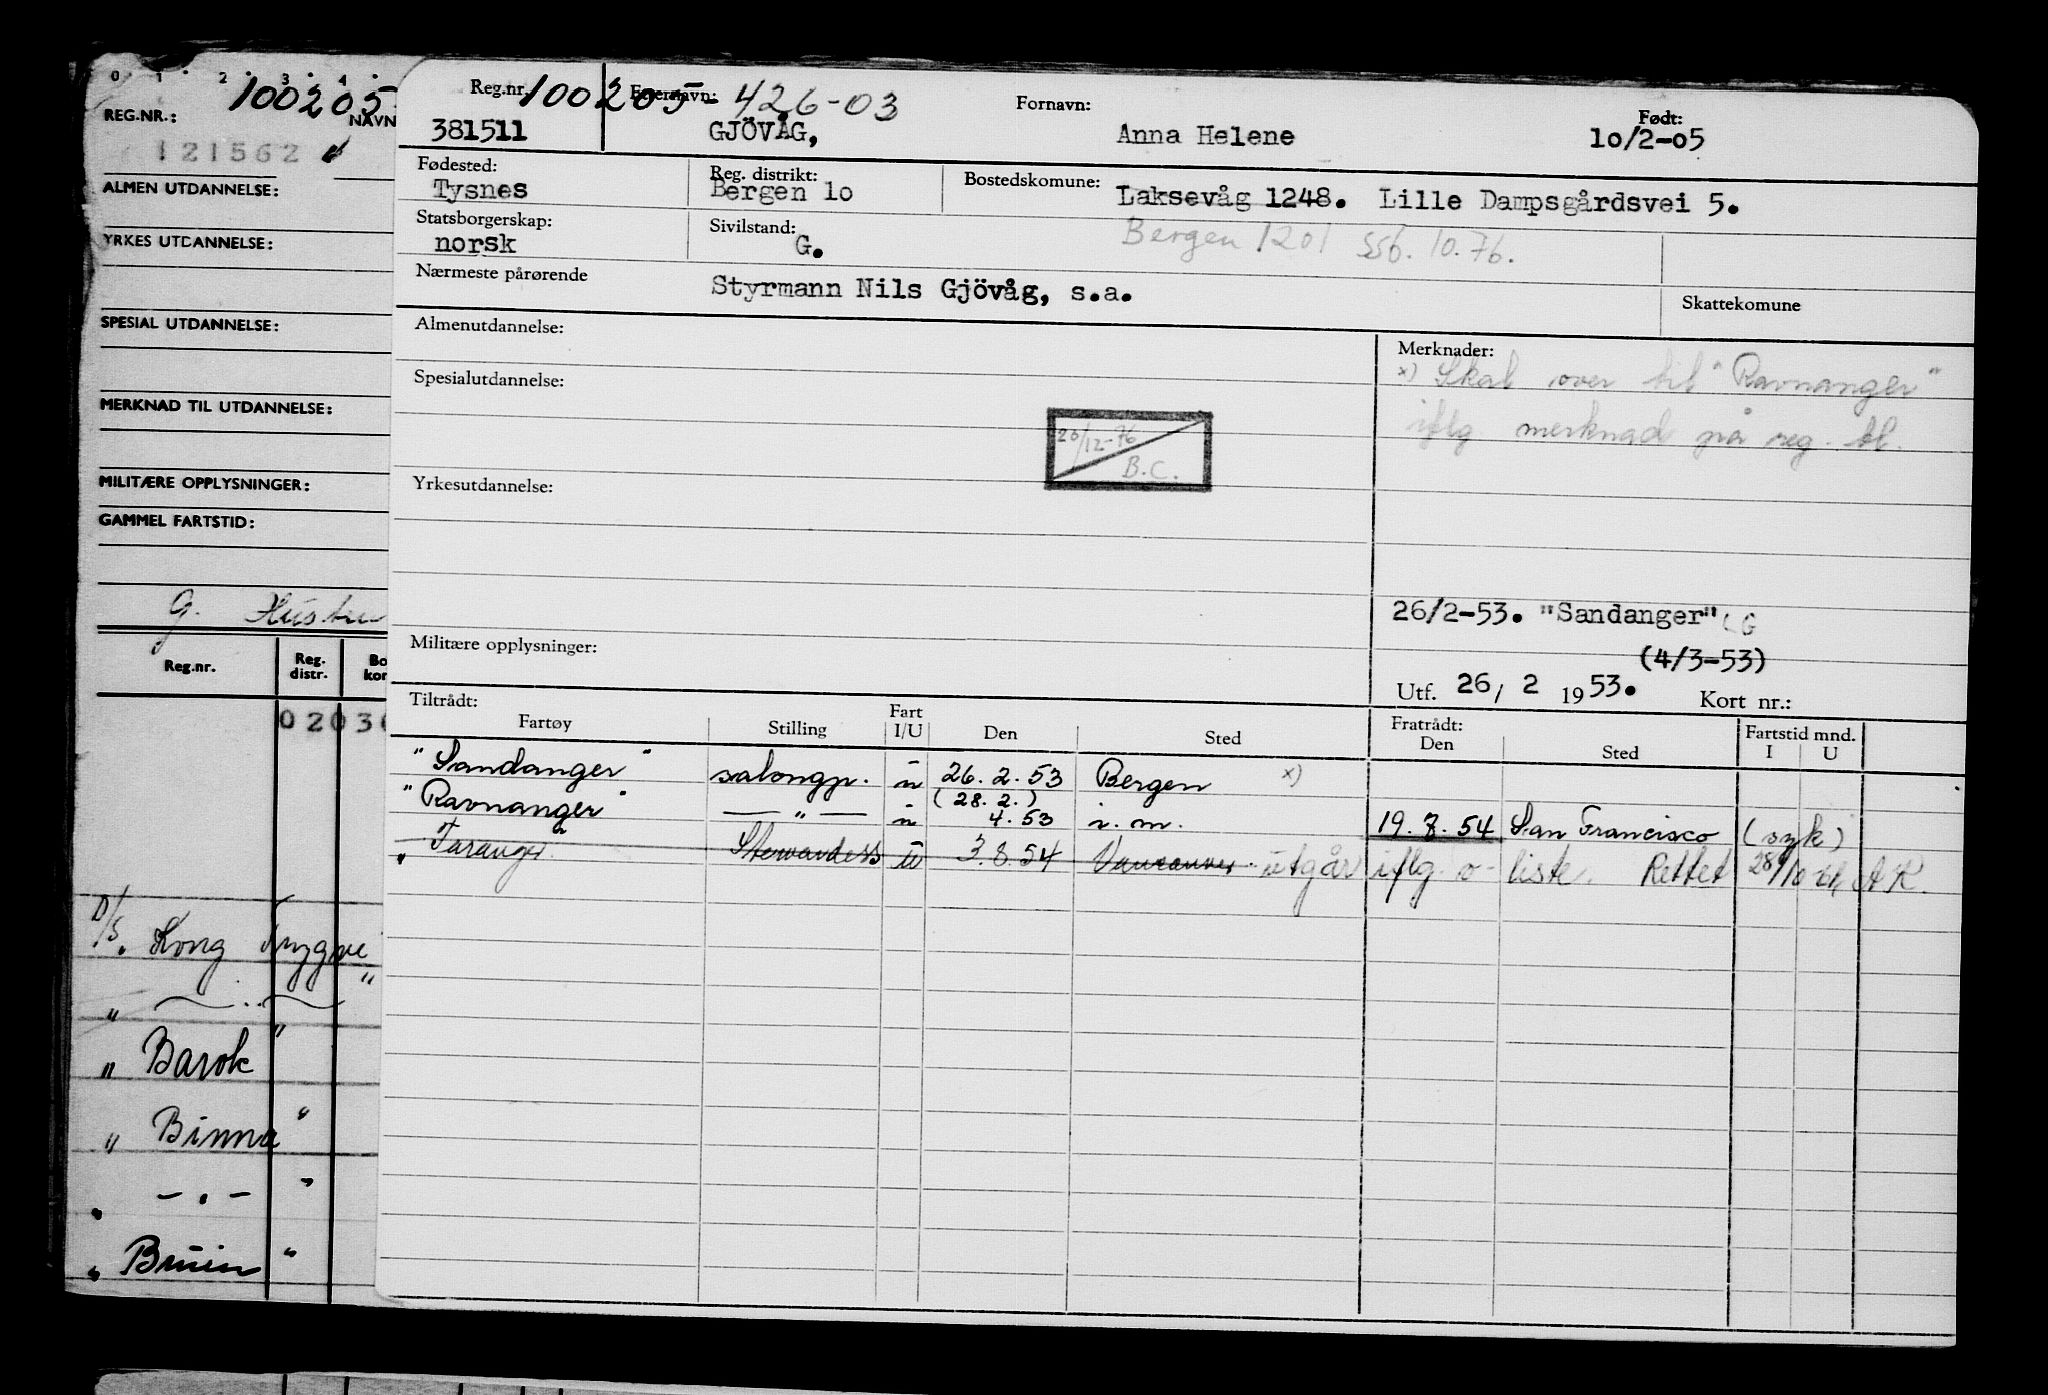 0 1 2 3 4
REG.NR.: 100205 NAVN
121562
ALMEN UTDANNELSE:
YRKES UTDANNELSE:
SPESIAL UTDANNELSE:
MERKNAD TIL UTDANNELSE:
MILITÆRE OPPLYSNINGER:
GAMMEL FARTSTID:
G. Hustru
Reg.nr. Reg. distr. Bo kor
0203
D/S. Kong Trygve
" — " — "
" Barok "
" Binna "
" — " — "
" Bruin "
Reg.nr. 100205-426-03 Etternavn: Fornavn: Født:
381511 GJÖVÅG, Anna Helene 10/2-05
Fødested: Reg. distrikt: Bostedskomune:
Tysnes Bergen 10 Laksevåg 1248. Lille Dampsgårdsvei 5.
Statsborgerskap: Sivilstand: Bergen 1201 SSB. 10.76.
norsk G.
Nærmeste pårørende Styrmann Nils Gjövåg, s.a. Skattekomune
Almenutdannelse: Merknader:
x) Skal over til "Ravnanger"
Spesialutdannelse:
iflg merknad på reg. bl.
20/12-76 B.C.
Yrkesutdannelse:
26/2-53. "Sandanger"
Militære opplysninger: (4/3-53)
Utf. 26/ 2 1953. Kort nr.:
Tiltrådt: Fratrådt: Fartstid mnd.
Fartøy Stilling Fart I/U Den Sted Den Sted I U
"Sandanger" salongp. u 26.2.53 Bergen x)
(28.2.)
"Ravnanger" — " — u 4.53 i.m. 19.7.54 San Francisco (syk)
" Taranger" Stewardess u 3.8.54 Vancouver utgår iflg. o-liste. Rettet 28/10-64 AK.